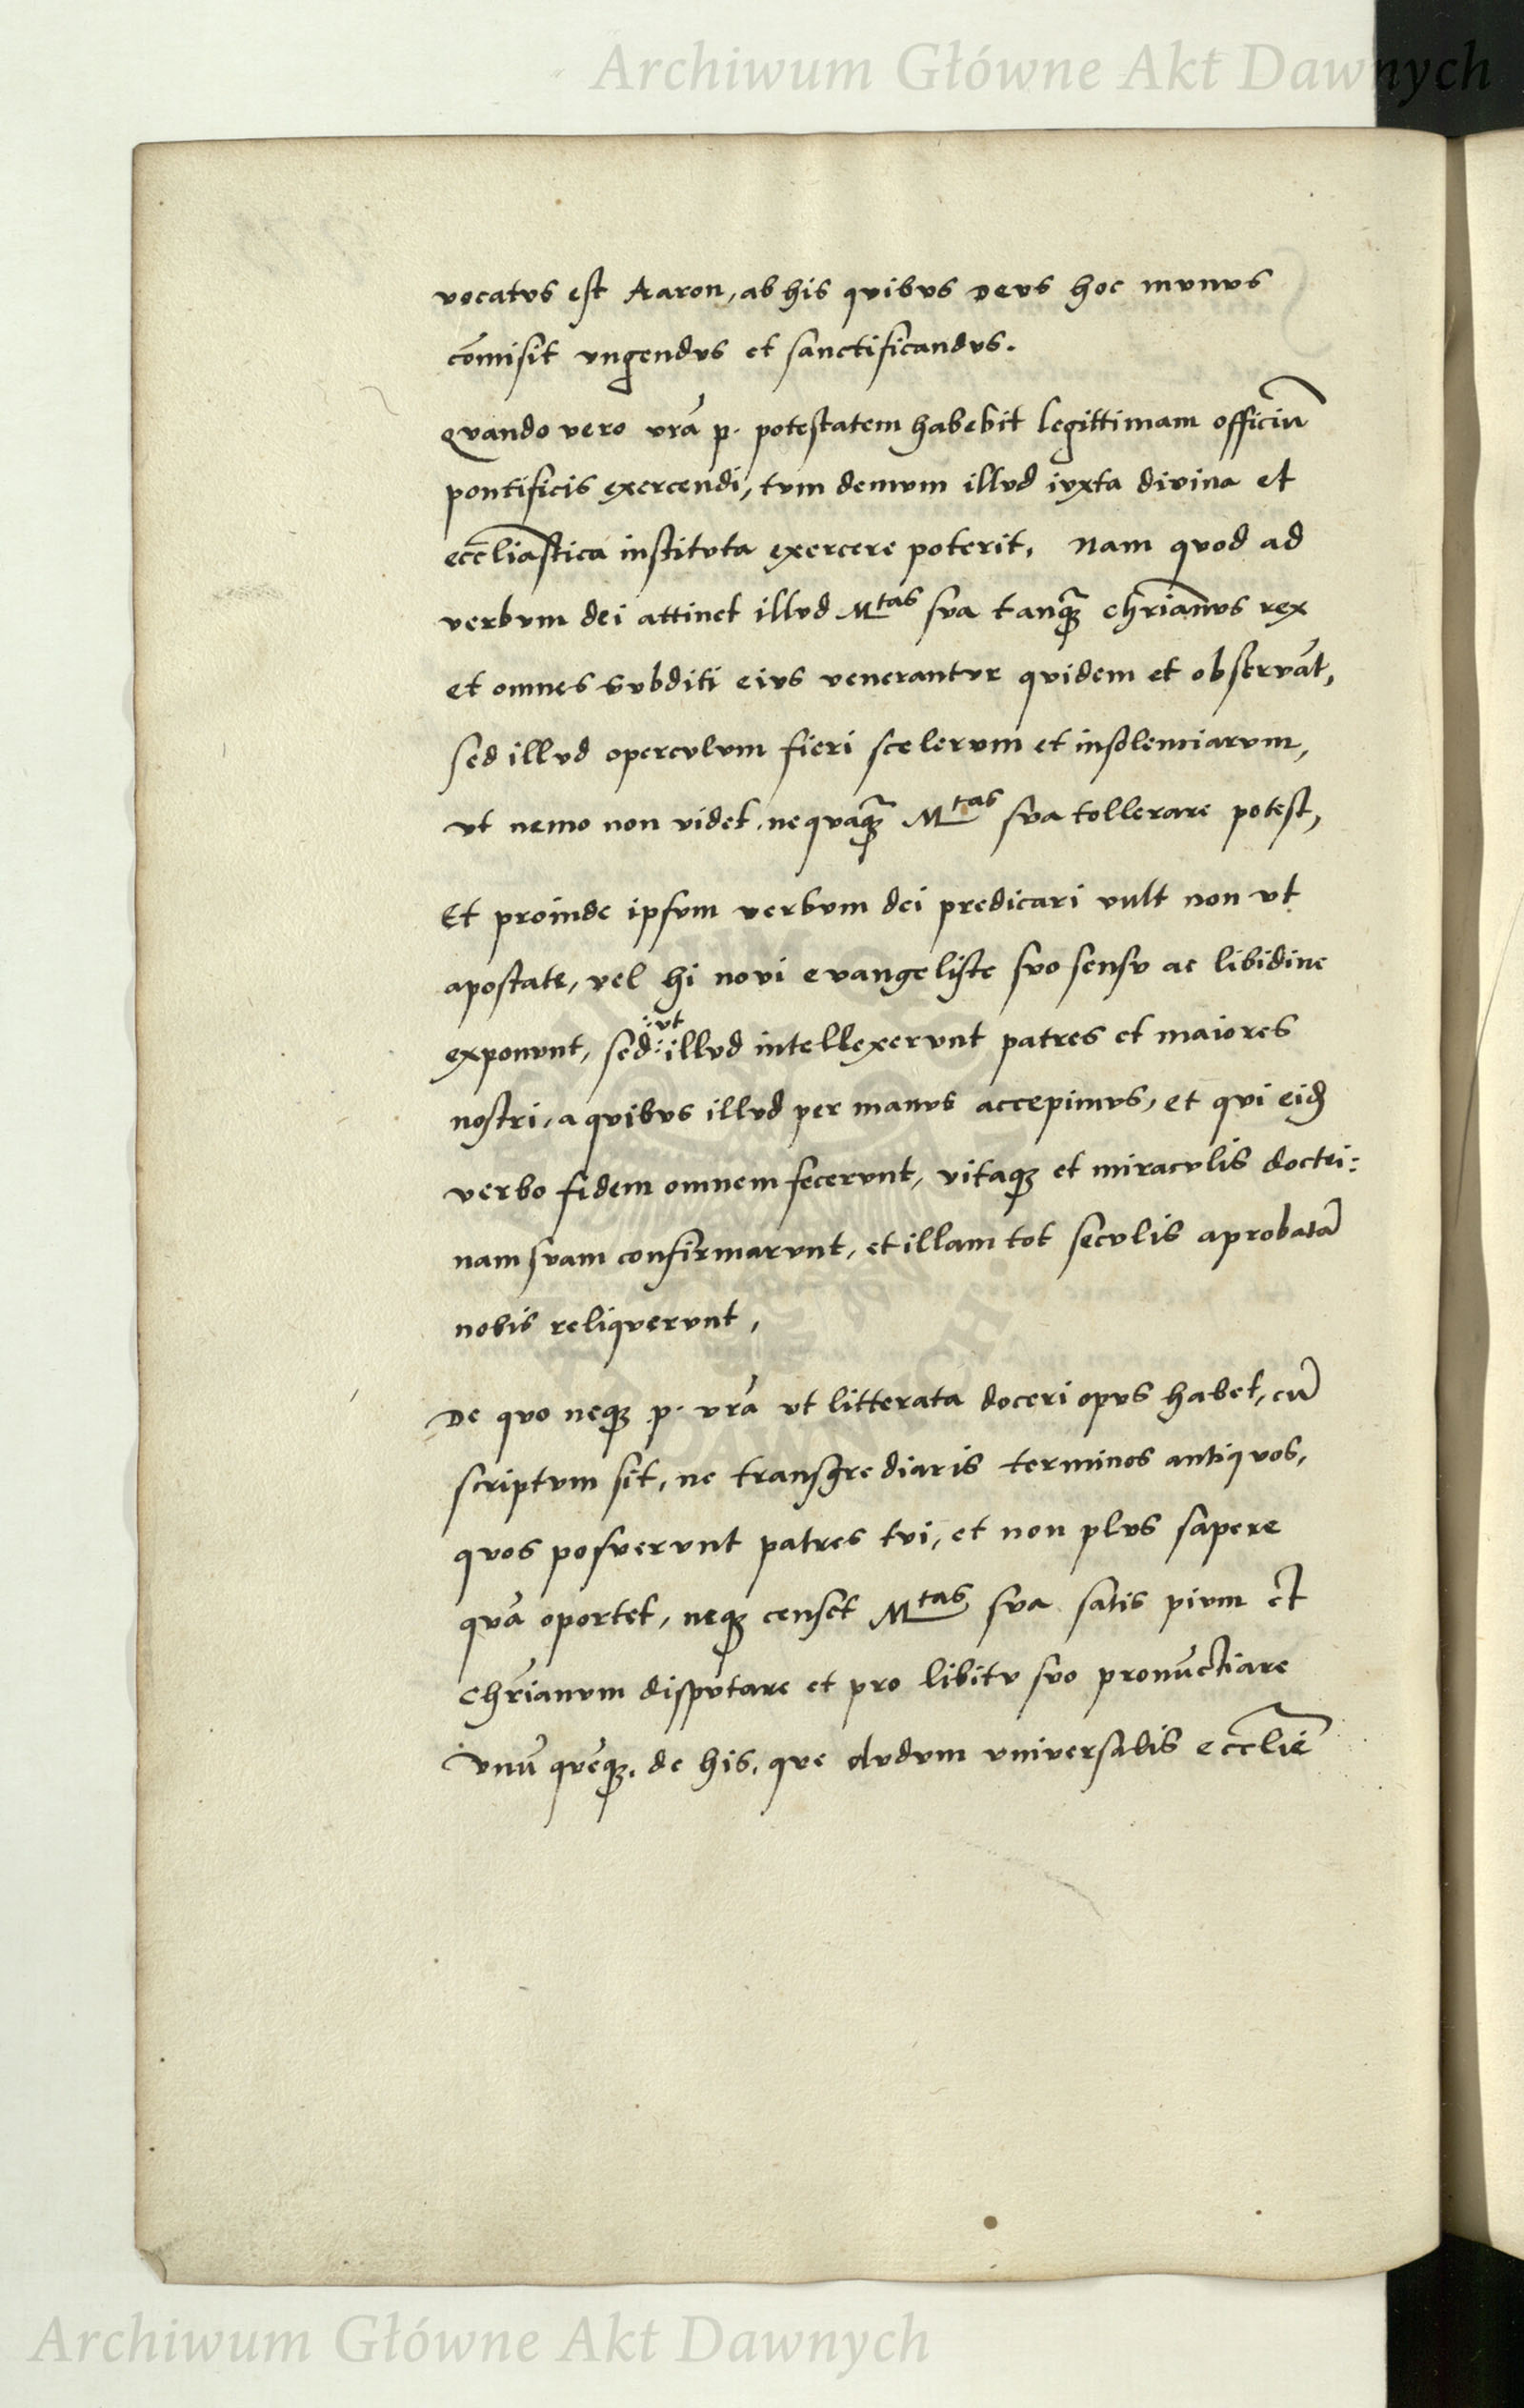 Archiwum Główne Akt Dawnych
vocatvs est Aaron, ab his qvibvs Devs hoc mvnvs
cōmisit vngendvs et sanctificandvs.
Qvando vero vrā p. potestatem habebit legittimam officiū
pontificis exercendi, tvm demvm illvd ivxta divina et
eccl̄iastica institvta exercere poterit, Nam qvod ad
verbvm dei attinet illvd Mtas sva tanqȝ̄ chr̄ianvs rex
et omnes svbditi eivs venerantvr qvidem et observāt,
sed illvd opercvlvm fieri scelervm et insolentiarvm,
vt nemo non videt, neqvāqȝ̄ Mtas sva tollerare potest,
Et proinde ipsvm verbvm dei predicari vult non vt
apostate, vel hi novi evangeliste svo sensv ac libidine
:vt
exponvnt, sed: illvd intellexervnt patres et maiores
nostri, a qvibvs illvd per manvs accepimvs, et qvi eidȝ
verbo fidem omnem fecervnt, vitaqȝ et miracvlis doctri:
nam svam confirmarvnt, et illam tot secvlis aprobatā
nobis reliqvervnt,
De qvo neqȝ p. vrā vt litterata doceri opvs habet, cū
scriptvm sit, ne transgrediaris terminos antiqvos,
qvos posvervnt patres tvi, et non plvs sapere
qvā oportet, neqȝ censet Mtas sva satis pivm et
Chr̄ianvm dispvtare et pro libitv svo pronūctiare
vnū qvēqȝ, de his, qve dvdvm vniversalis eccl̄ie
Archiwum Główne Akt Dawnych